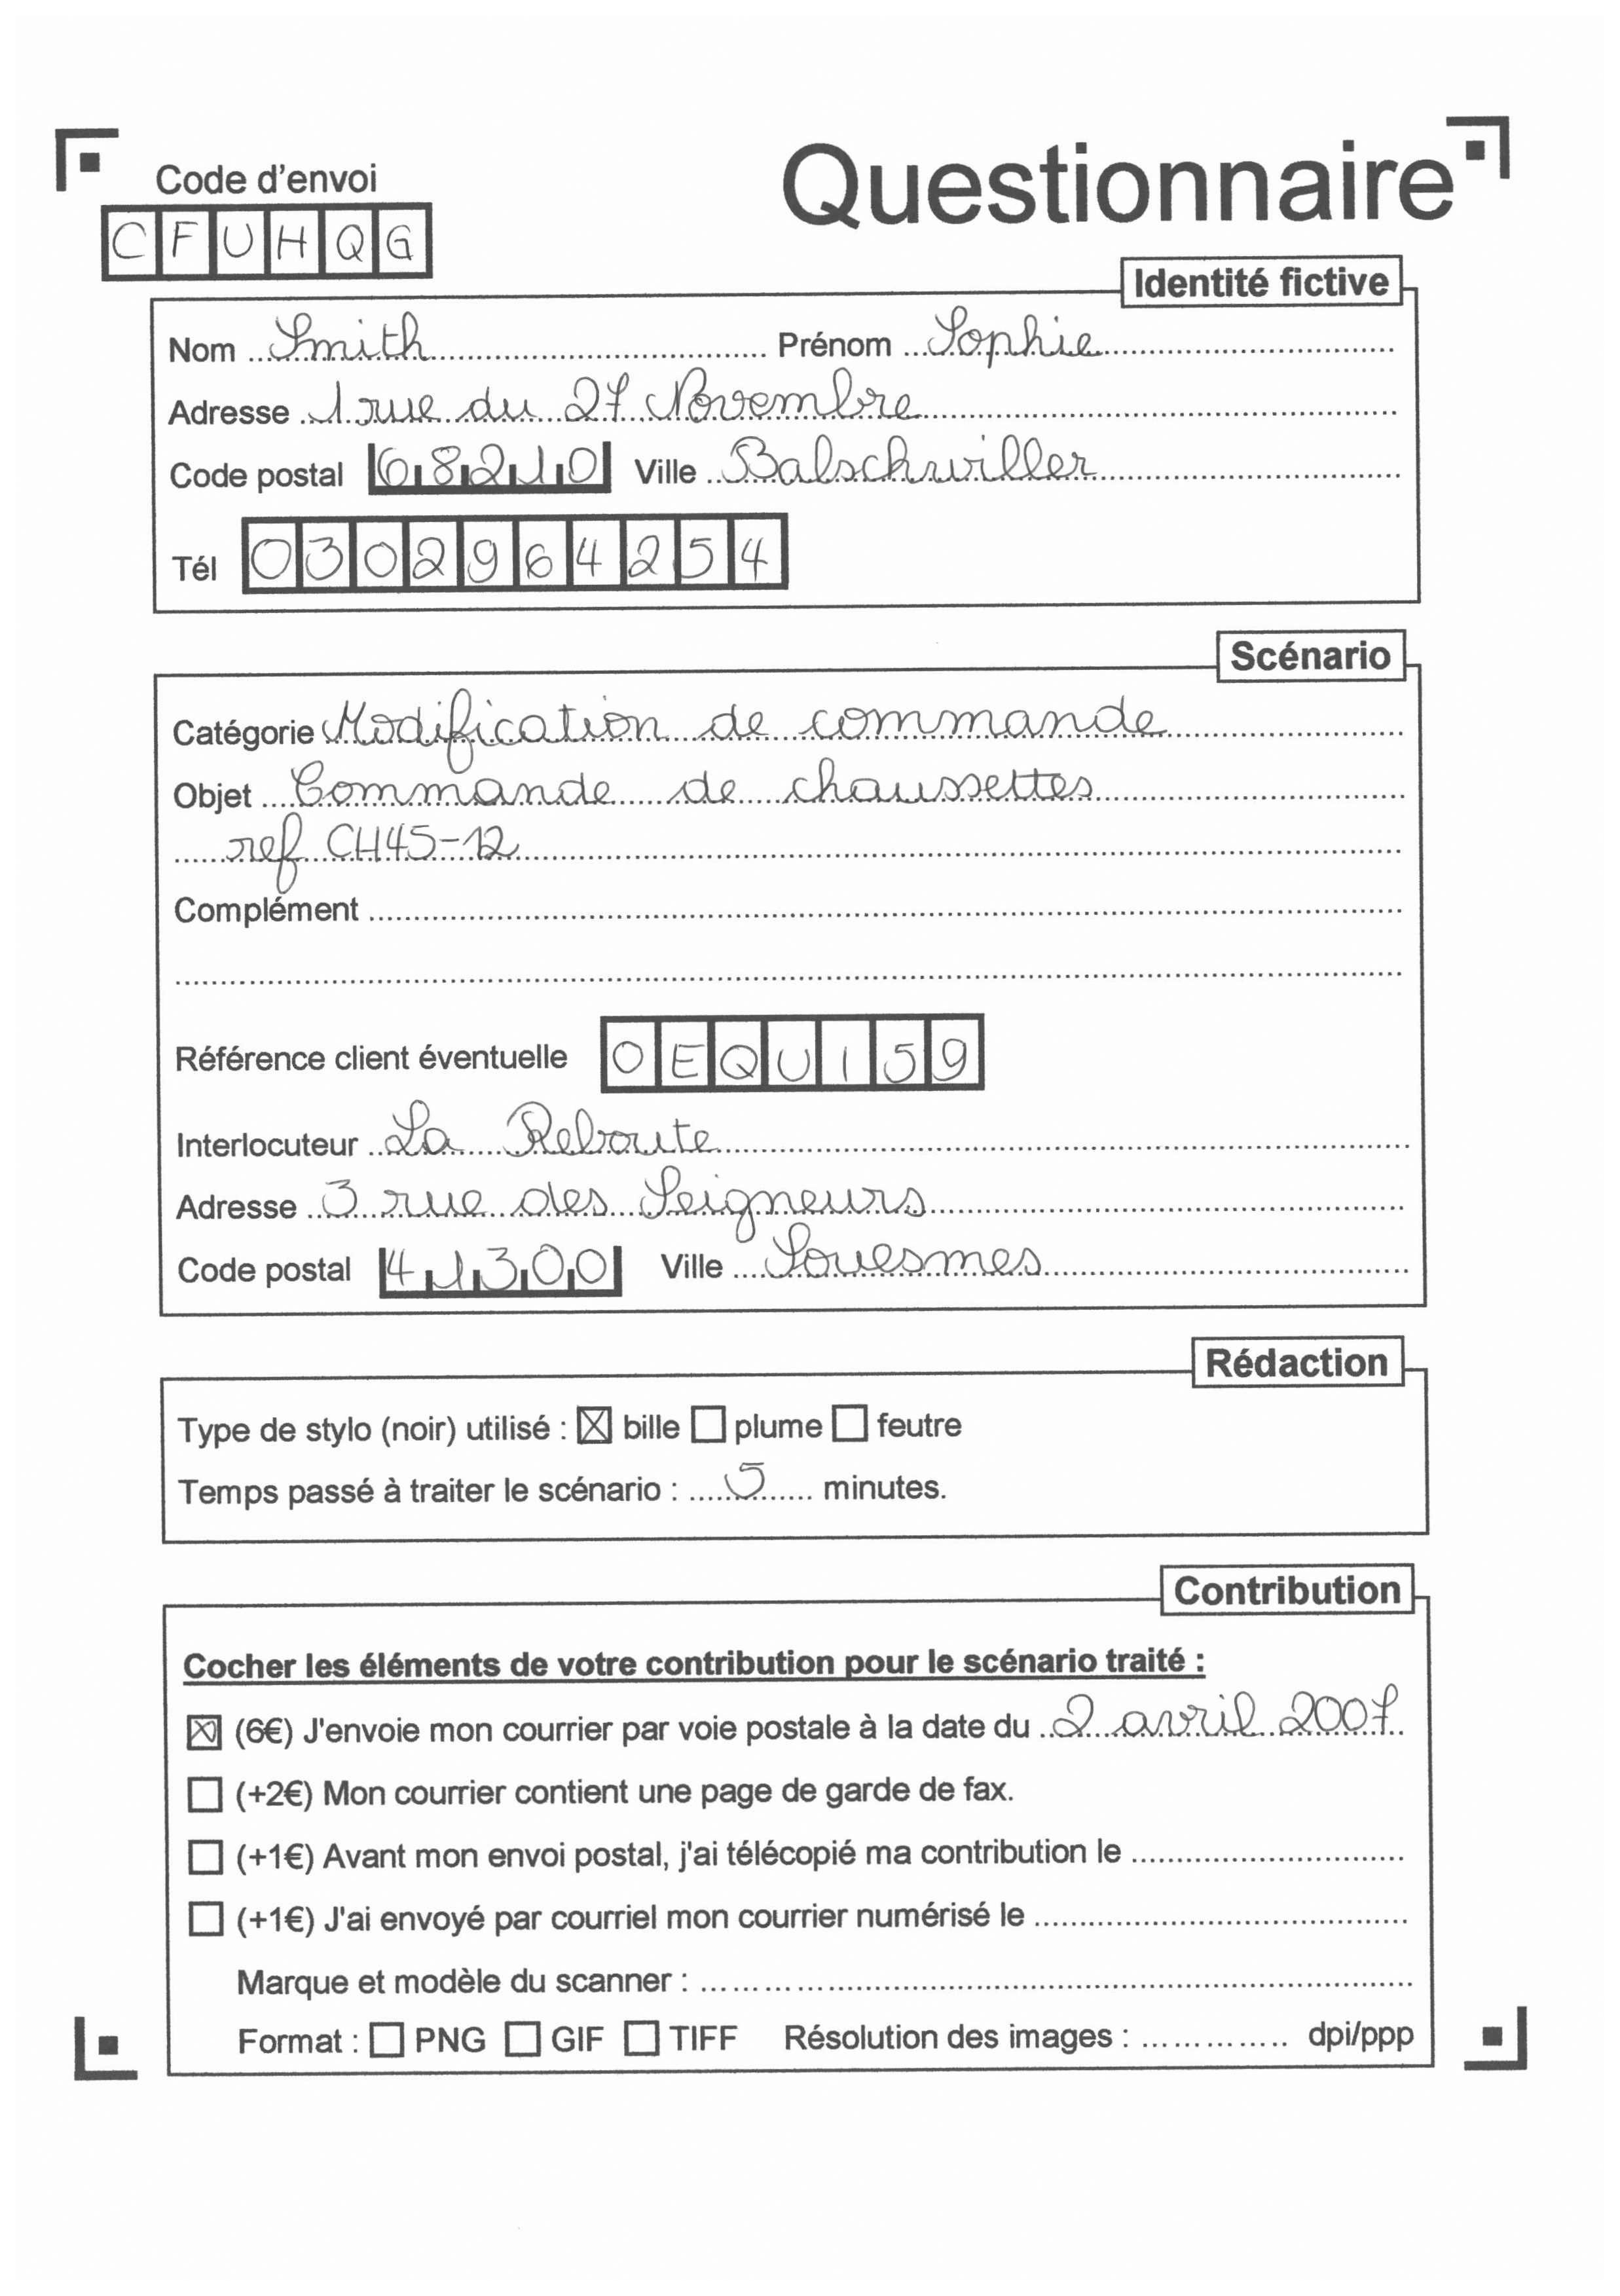 Code d'envoi
Questionnaire
CFUHQG
Identité fictive
Nom Smith Prénom Sophie
Adresse 1 rue du 27 Novembre
Code postal 68210 Ville Balschwiller
Tél 0302964254
Scénario
Catégorie Modification de commande
Objet Commande de chaussettes
ref CH45-12
Complément
Référence client éventuelle OEQUI59
Interlocuteur La Reboute
Adresse 3 rue des Seigneurs
Code postal 41300 Ville Souesmes
Rédaction
Type de stylo (noir) utilisé : ☒ bille ☐ plume ☐ feutre
Temps passé à traiter le scénario : 5 minutes.
Contribution
Cocher les éléments de votre contribution pour le scénario traité :
☒ (6€) J'envoie mon courrier par voie postale à la date du 2 avril 2007
☐ (+2€) Mon courrier contient une page de garde de fax.
☐ (+1€) Avant mon envoi postal, j'ai télécopié ma contribution le
☐ (+1€) J'ai envoyé par courriel mon courrier numérisé le
Marque et modèle du scanner :
Format : ☐ PNG ☐ GIF ☐ TIFF Résolution des images : dpi/ppp